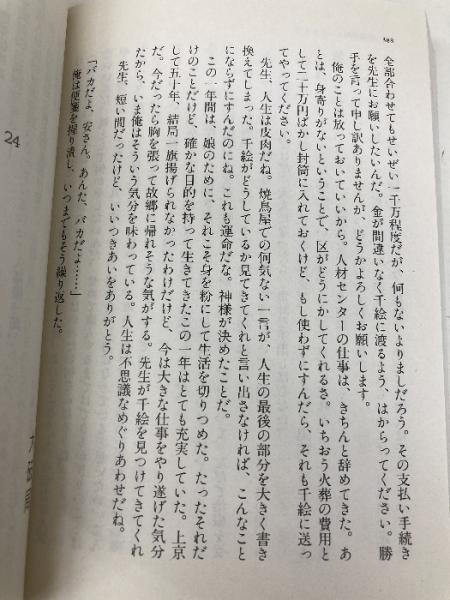 388
全部合わせてもせいぜい一千万程度だが、何もないよりましだろう。その支払い手続き
を先生にお願いしたいんだ。金が間違いなく千絵に渡るよう、はからってください。勝
手を言って申し訳ありませんが、どうかよろしくお願いします。
俺のことは放っておいていいから。人材センターの仕事は、きちんと辞めてきた。あ
とは、身寄りがないということで、区がどうにかしてくれるさ。いちおう火葬の費用と
して二十万円ばかし封筒に入れておくけど、もし使わずにすんだら、それも千絵に送っ
てやってください。
先生、人生は皮肉だね。焼鳥屋での何気ない一言が、人生の最後の部分を大きく書き
換えてしまった。千絵がどうしているか見てきてくれと言い出さなければ、こんなこと
にならずにすんだのにね。これも運命だな。神様が決めたことだ。
この一年間は、娘のために、それこそ身を粉にして生活を切りつめた。たったそれだ
けのことだけど、確かな目的を持って生きてきたこの一年はとても充実していた。上京
して五十年、結局一旗揚げられなかったわけだけど、今は大きな仕事をやり遂げた気分
だ。今だったら胸を張って故郷に帰れそうな気がする。先生が千絵を見つけてきてくれ
たから、いま俺はそういう気分を味わっている。人生は不思議なめぐりあわせだね。
先生、短い間だったけど、いいつきあいをありがとう。
「バカだよ、安さん。あんた、バカだよ……」
俺は便箋を握り潰し、いつまでもそう繰り返した。
24